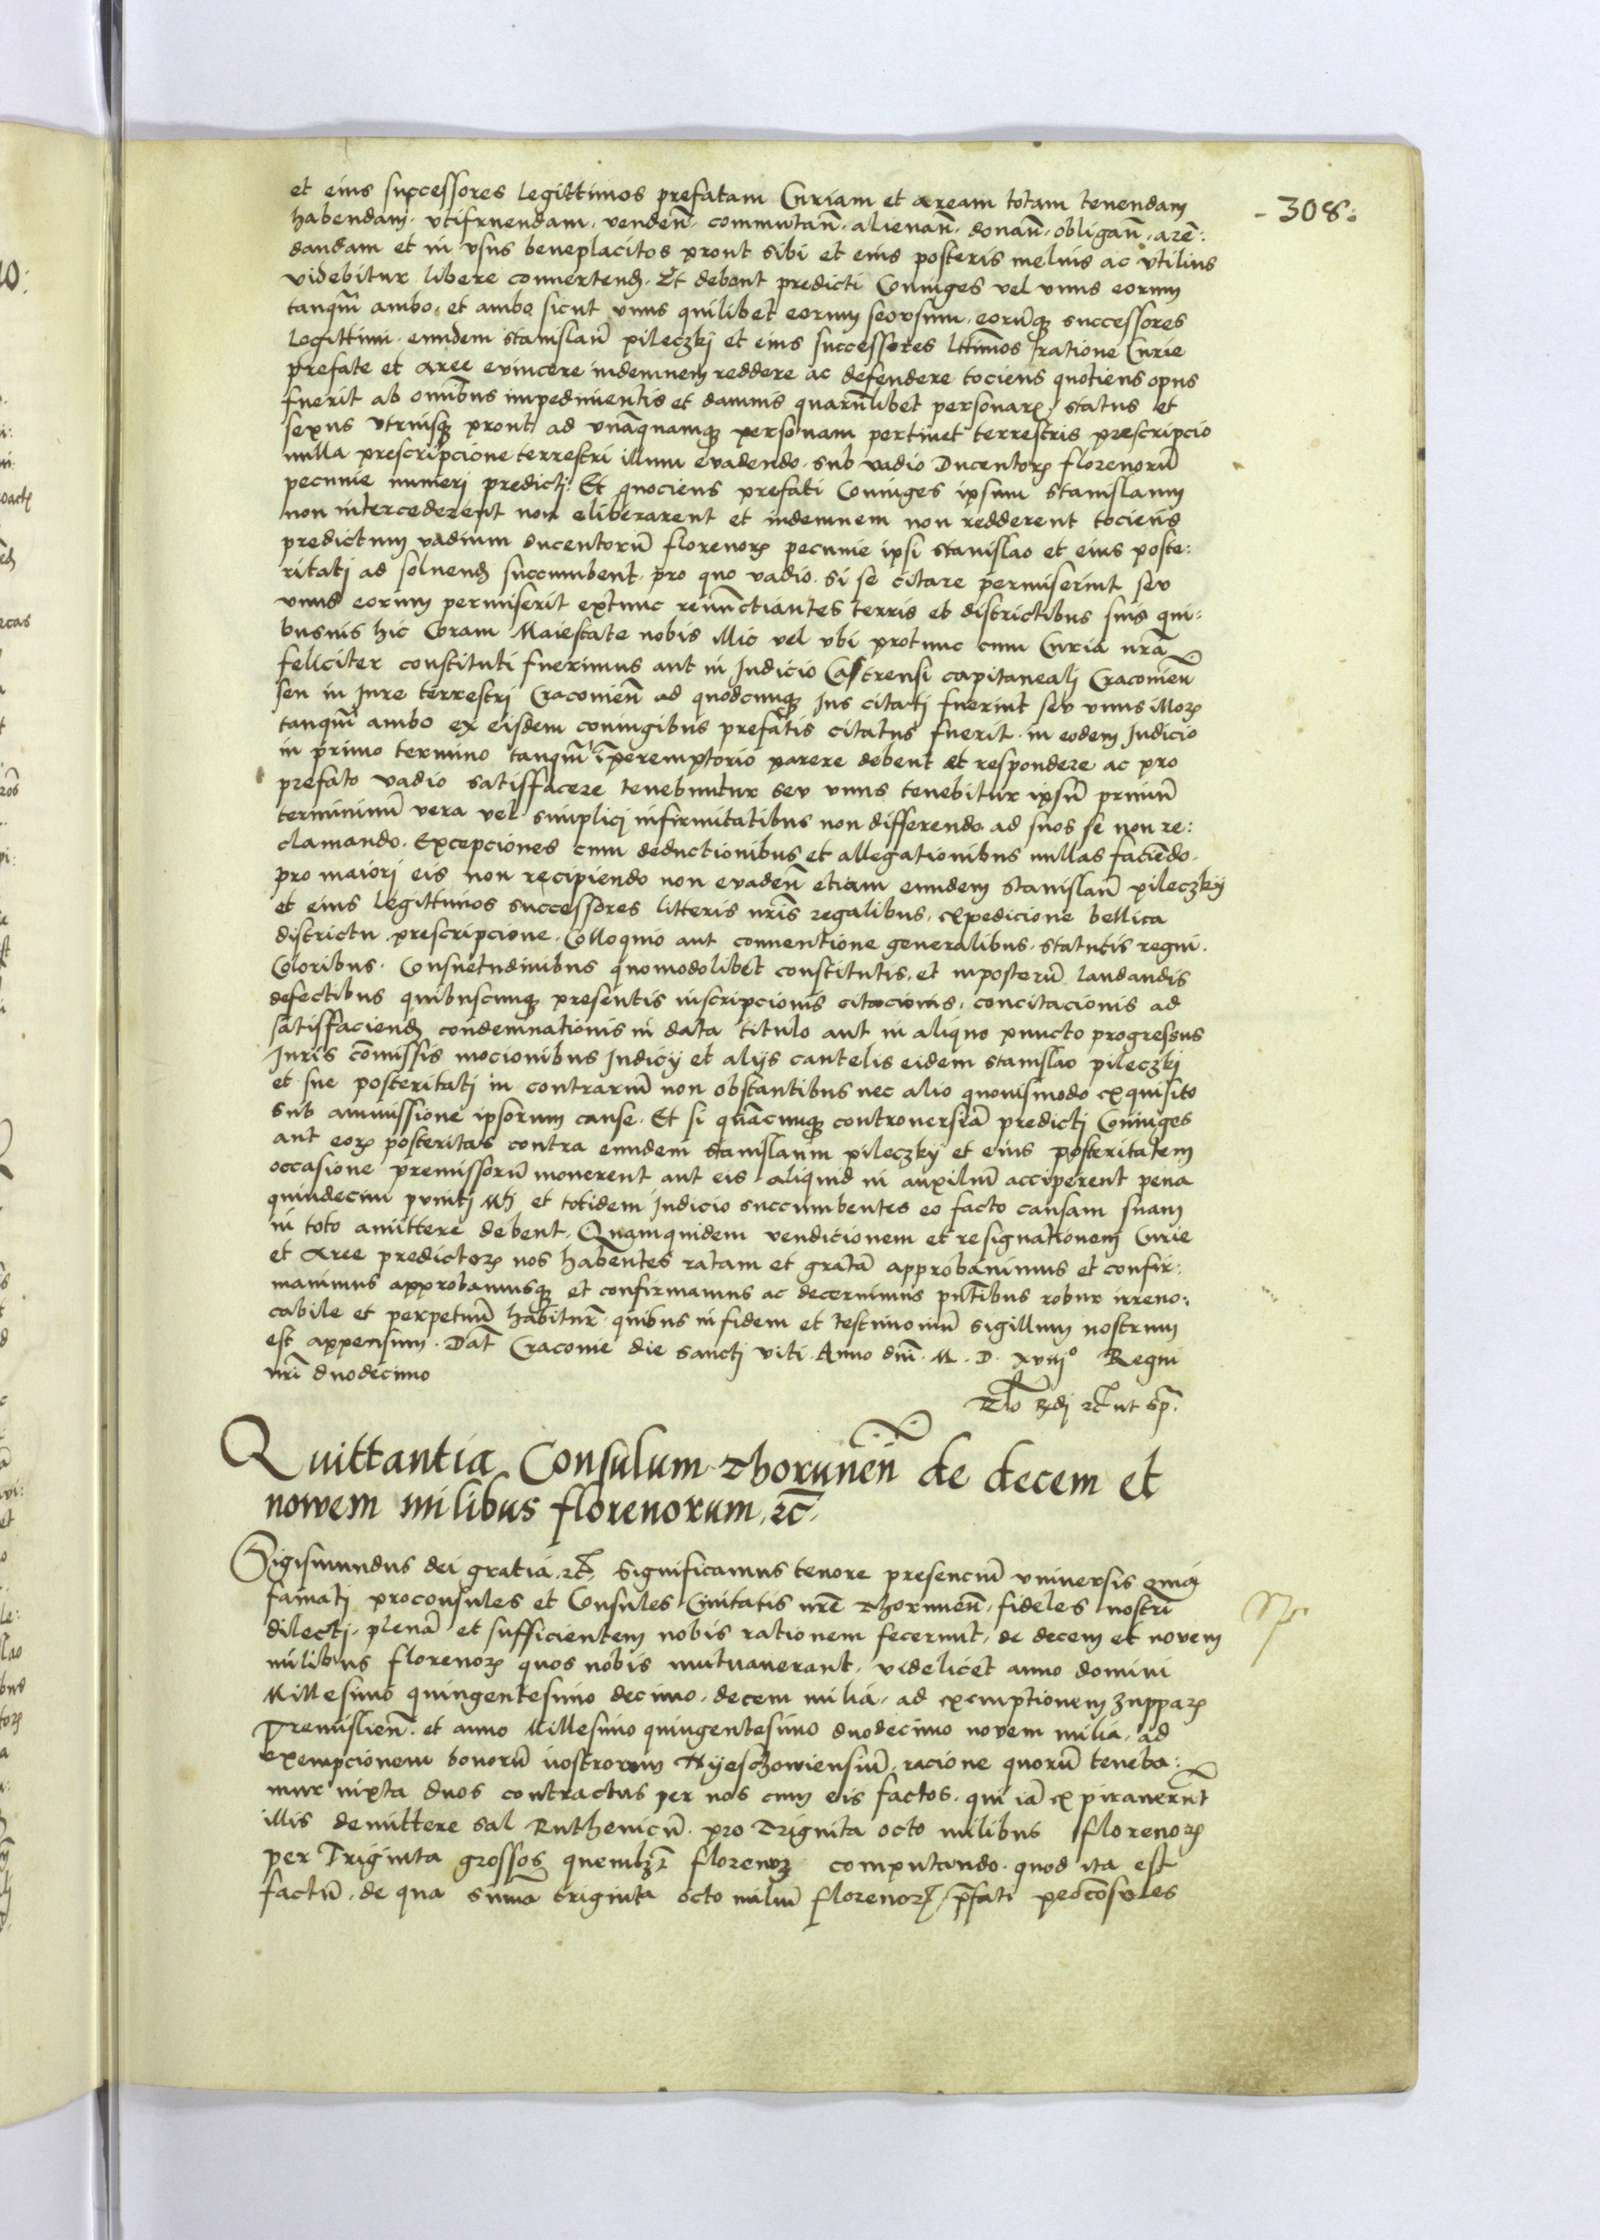 -308:
et eius successores legittimos prefatam Curiam et aream totam tenendam
habendam, vtifruendam, vendeñ, commutañ, alienañ, donañ, obligañ, arē:
dandam et in vsus beneplacitos prout sibi et eius posteris melius ac vtilius
videbitur libere conuertendɉ. Et debent predicti Coniuges vel vnus eorum
tanqūm ambo, et ambo sicut vnus quilibet eorum seorsum, eorūqꝫ successores
Legittimi. eundem stanislaū pileczkj et eius successores lttimos ratione Curie
prefate et aree evincere indemnem reddere ac defendere tociens quotiens opus
fuerit ab omībus impedimentis et damnis quarūlibet personarꝝ, status et
sexus vtriusqꝫ prout ad vnāquamqꝫ personam pertinet terrestris prescripcio
nulla prescripcione terrestri illum evadendo. sub vadio Ducentorꝝ florenorū
pecunie numeri predicti. Et quociens prefati Coniuges ipsum stanislaum
non intercederent non eliberarent et indemnem non redderent tociens
predictum vadium ducentorū florenorꝝ pecunie ipsi stanislao et eius poste:
ritati ad soluendɉ succumbent, pro quo vadio. si se citare permiserint seu
vnus eorum permiserit extunc renūctiantes terris et districtibus suis qui:
busuis hic Coram Maiestate nobis illic vel vbi protunc cum Curia nrā
feliciter constituti fuerimus aut in Judicio Castrensi capitanealj Cracovieñ
seu in Jure terrestri Cracovieñ ad quodcunqꝫ Jus citati fuerint seu vnus illorꝝ
tanqūm ambo ex eisdem coniugibus prefatis citatus fuerit. in eodem Judicio
in primo termino tanqūm peremptorio parere debent et respondere ac pro
prefato vadio satisfacere tenebuntur seu vnus tenebitur ipsū primū
terminum vera vel simplici infirmitatibus non differendo ad suos se non re:
clamando. Excepciones cum deductionibus et allegationibus nullas faciēdo.
pro maiori eis non recipiendo non evadeñ etiam eundem stanislaū pileczky
et eius legittimos successores litteris nrīs regalibus, expedicione bellica
districtu prescripcione. Colloquio aut conuentione generalibus. statutis regni.
Coloribus. Consuetudinibus quomodolibet constitutis, et inposterū laudandis
defectibus quibuscunqꝫ presentis inscripcionis citacionis, concitacionis ad
satisfaciendɉ condemnationis in data titulo aut in aliquo puncto progressus
Juris cōmissis mocionibus Judicij et alijs cautelis eidem stanislao pileczkj
et sue posteritati in contrariū non obstantibus nec alio quouismodo exquisito
sub ammissione ipsorum cause. Et si quācunqꝫ controuersiā predicti Coniuges
aut eorꝝ posteritas contra eundem stanislaum pileczky et eius posteritatem
occasione premissorū mouerent aut eis aliquid in auxiliū acciperent pena
quindecim puniti et totidem Judicio succumbentes eo facto causam suam
in toto amittere debent. Quamquidem vendicionem et resignationem Curie
et Aree predictorꝝ nos habentes ratam et gratā approbauimus et confir:
mauimus approbamusqꝫ et confirmamus ac decernimus pntībus robur irreuo:
cabile et perpetuū habiturꝝ. quibus in fidem et testimoniū sigillum nostrum
est appensum. Dat̄ Cracovie die sancti viti. Anno dnī. M. D. xviijo Regni
nrī duodecimo
Rlo ut sp̄.
Quittantia Consulum Thoruneñ de decem et
nowem milibus florenorum, ꝛc̄.
Sigismundus dei gratia ꝛc̄. significamus tenore presenciū vniuersis quia
famati proconsules et Consules Ciuitatis nrē Thoruneñ, fideles nostri
dilecti, plenā et sufficientem nobis rationem fecerunt, de decem et novem
milibus florenorꝝ quos nobis mutuauerant, videlicet anno domini
Millesimo quingentesimo decimo, decem milia, ad exemptionem zupparꝝ
Premislieñ. et anno Millesimo quingentesimo duodecimo novem milia, ad
exempcionem bonorū nostrorum Nyeschowiensiū, racione quorū teneba:
mur iuxta duos contractus per nos cum eis factos. qui iā expirauerūt
illis demittere sal Ruthenicū. pro Triginta octo milibus florenorꝝ
per Triginta grossos quemlꝫt florenoꝝ computando. quod ita est
factū. de qua summa triginta octo miliū florenorꝝ, p̄fati procōsules